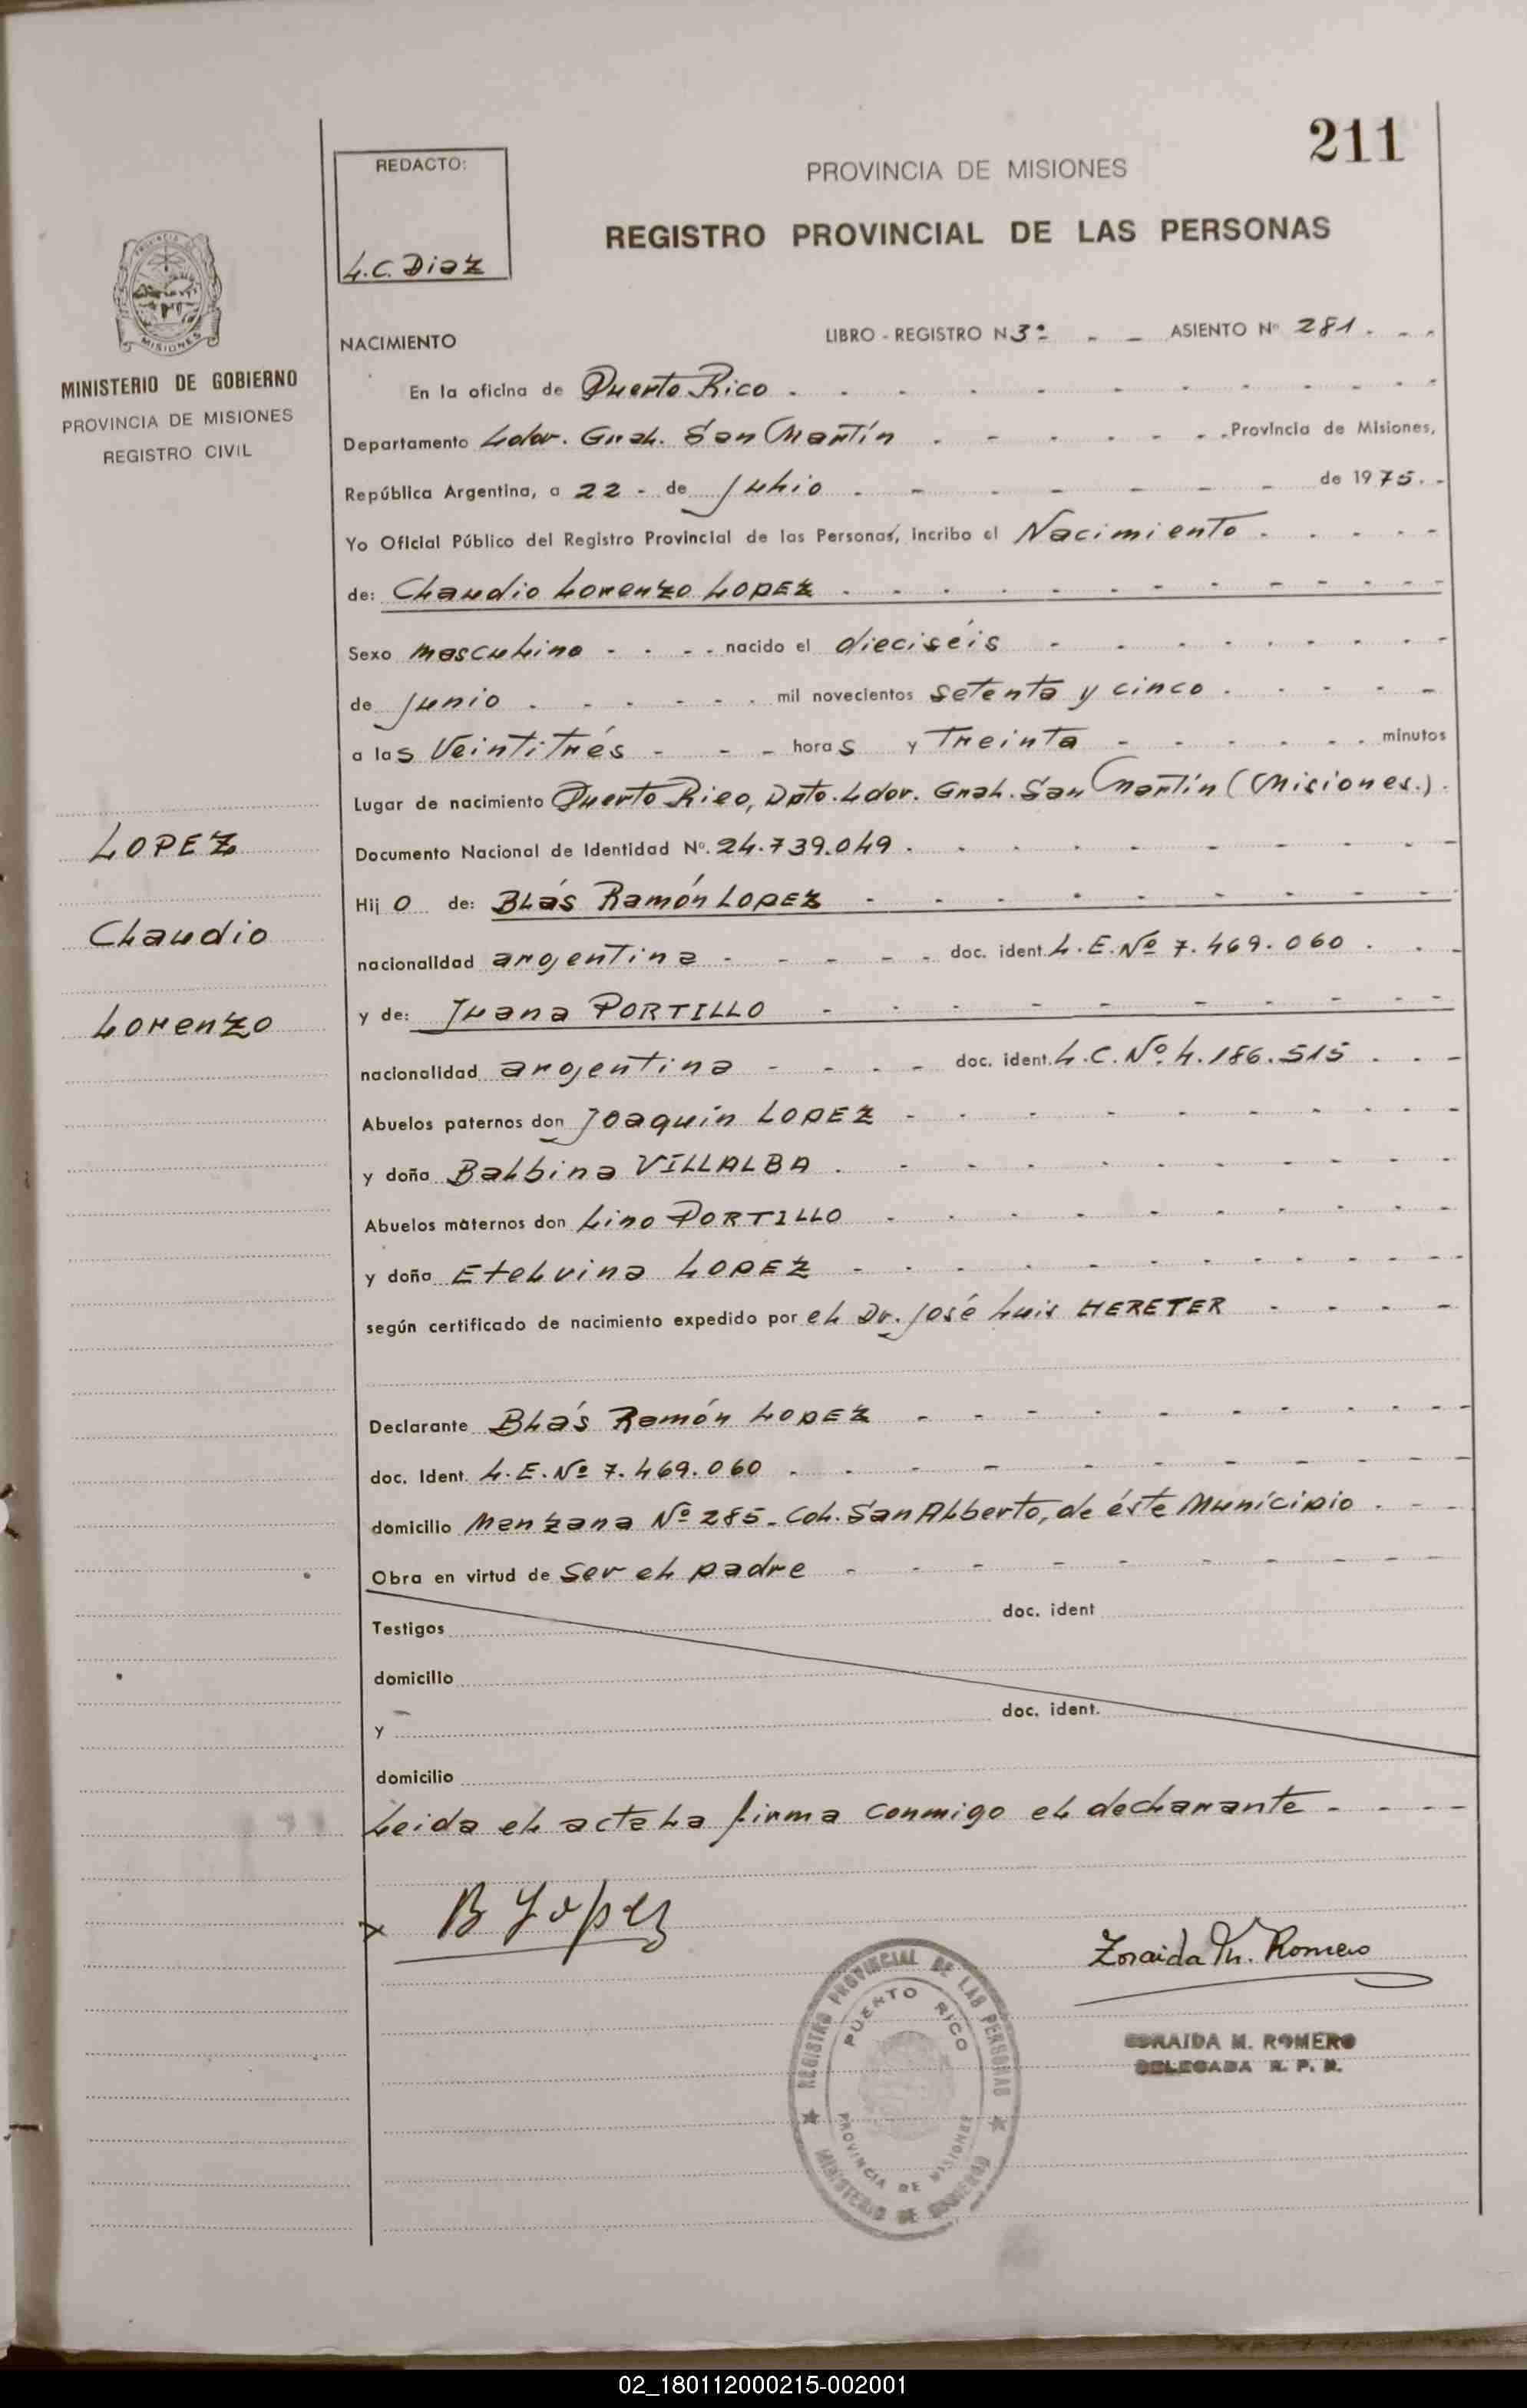 211
REDACTO:
L.C. Diaz
PROVINCIA DE MISIONES
REGISTRO PROVINCIAL DE LAS PERSONAS
MISIONES
MINISTERIO DE GOBIERNO
PROVINCIA DE MISIONES
REGISTRO CIVIL
NACIMIENTO LIBRO - REGISTRO N 3º - - ASIENTO Nº 281
En la oficina de Puerto Rico
Departamento Ldor. Gral. San Martín Provincia de Misiones,
República Argentina, a 22 - de Julio de 1975.
Yo Oficial Público del Registro Provincial de las Personas, incribo el Nacimiento
de: Claudio Lorenzo LOPEZ
Sexo masculino nacido el dieciséis
de junio mil novecientos setenta y cinco
a las Veintitrés horas y Treinta minutos
Lugar de nacimiento Puerto Rico, Dpto. Ldor. Gral. San Martín (Misiones.)
Documento Nacional de Identidad Nº. 24.739.049
Hijo de: Blás Ramón LOPEZ
nacionalidad argentina doc. ident. L.E. Nº 7.469.060
y de: Juana PORTILLO
nacionalidad argentina doc. ident. L.C. Nº 4.186.515
Abuelos paternos don Joaquín LOPEZ
y doña Balbina VILLALBA
Abuelos maternos don Lino PORTILLO
y doña Etelvina LOPEZ
según certificado de nacimiento expedido por el Dr. José Luis HERETER
Declarante Blás Ramón LOPEZ
doc. Ident. L.E. Nº 7.469.060
domicilio Manzana Nº 285 - Col. San Alberto, de éste Município
Obra en virtud de ser el padre
Testigos doc. ident
domicilio
y doc. ident.
domicilio
Leida el acta la firma conmigo el declarante
LOPEZ
Claudio
Lorenzo
x B Lopez
Zoraida M. Romero
ZORAIDA M. ROMERO
DELEGADA R. P. P.
REGISTRO PROVINCIAL DE LAS PERSONAS
PUERTO RICO
PROVINCIA DE MISIONES
MINISTERIO DE GOBIERNO
02_180112000215-002001